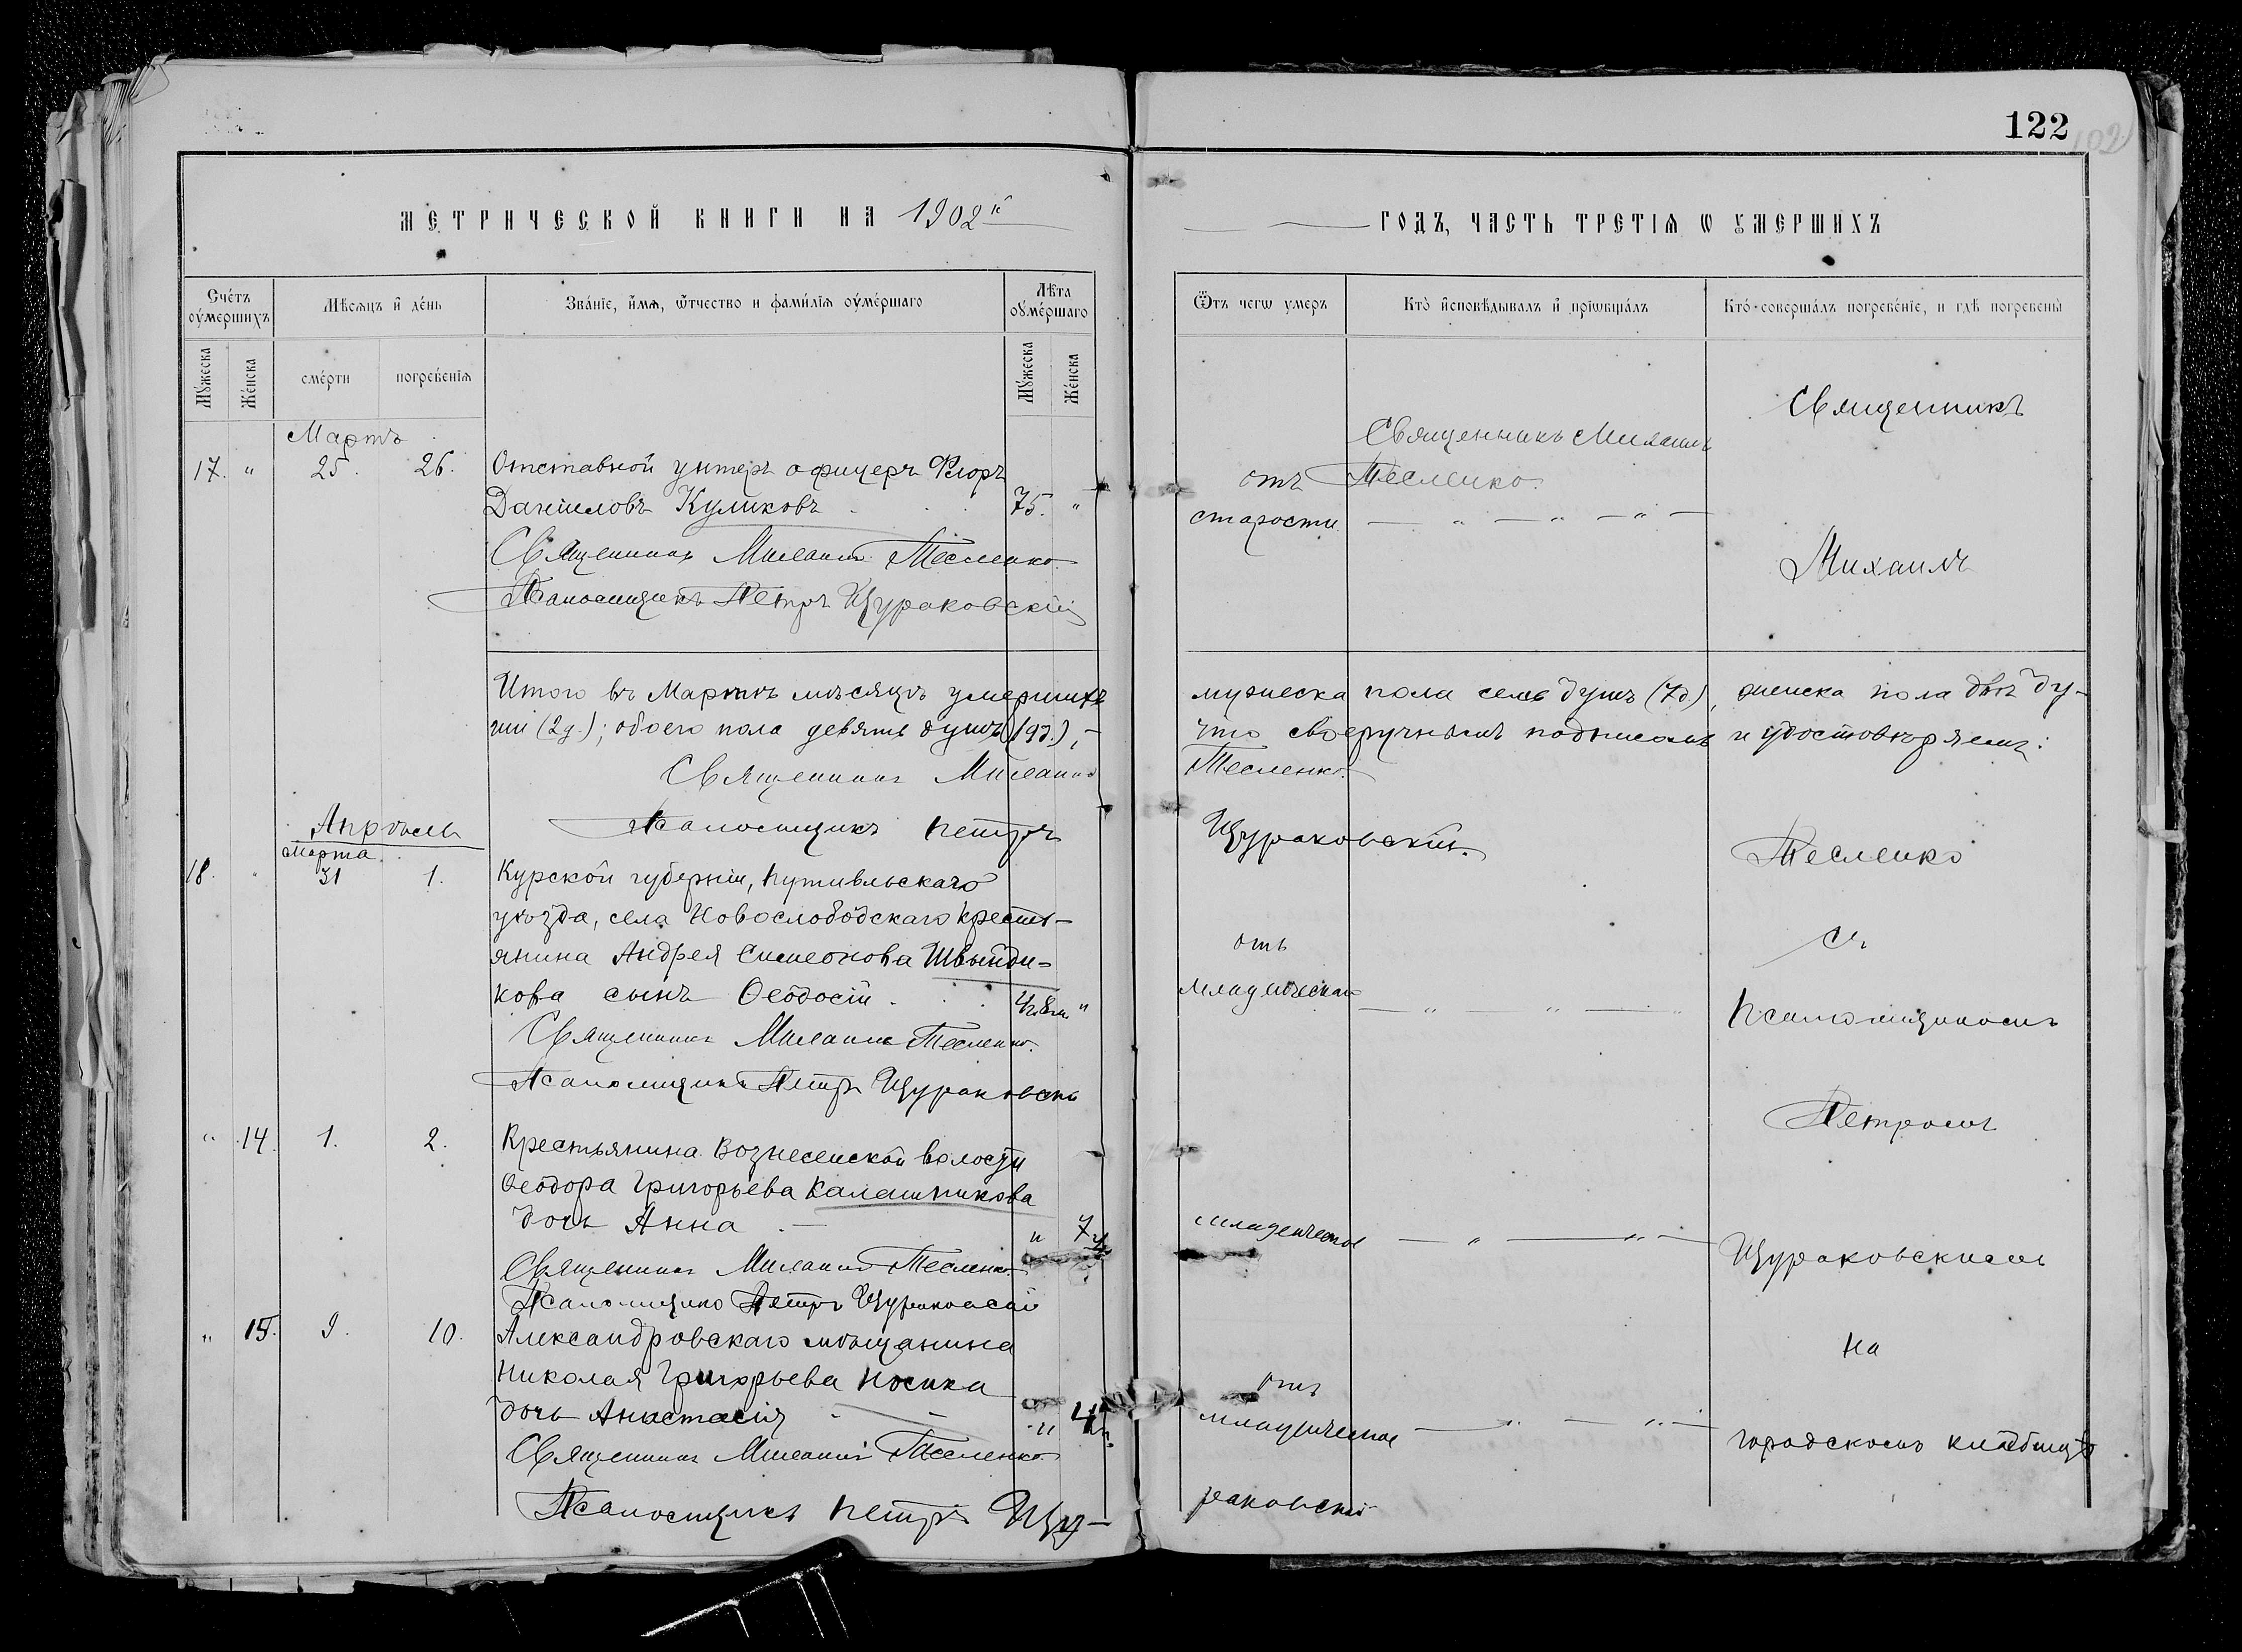 122
102
МЕТРИЧЕСКОЙ КНИГИ НА 1902й
ГОДЪ, ЧАСТЬ ТРЕТІѦ Ѡ УМЕРШИХЪ
Счетъ оумершихъ
Мѣсяцъ и день
Званіе, имѧ, ѿтчество и фамилія оумершаго
Лѣта оумершаго
Мужеска
Женска
смерти
погребенія
Мужеска
Женска
Ѿтъ чегѡ умеръ
Кто исповѣдывалъ и пріѡбщалъ
Кто совершалъ погребеніе, и гдѣ погребены
Мартъ
17. " 25. 26. Отставной унтеръ офицеръ Флоръ
Даніиловъ Куликовъ 75. "
Священникъ Михаилъ Тесленко.
Псаломщикъ Петръ Щураковскій
отъ
старости
Священникъ Михаилъ
Тесленко.
Священникъ
Михаилъ
Итого въ Мартѣ мѣсяцѣ умершихъ мужеска пола семь душъ (7д), женска пола двѣ ду-
ши (2д.); обоего пола девять душъ (9д.), что своеручнымъ подписомъ и удостовѣряемъ:
Священникъ Михаилъ Тесленко.
Псаломщикъ Петръ Щураковскій.
Апрѣль
Марта
18. " 31 1. Курской губерніи, Путивльскаго
уѣзда, села Новослободскаго кресть-
янина Андрея Симеонова Швынди-
кова сынъ Ѳеодосій "
Священникъ Михаилъ Тесленко.
Псаломщикъ Петръ Щураковскій
отъ
младенческой
Тесленко
съ
Псаломщикомъ
Петромъ
" 14 1. 2. Крестьянина Вознесенской волости
Ѳеодора Григорьева Калашникова
дочь Анна " 7
Священникъ Михаилъ Тесленко.
Псаломщикъ Петръ Щураковскій
младенческой
Щураковскимъ
" 15. 9. 10. Александровскаго мѣщанина
Николая Григорьева Носика
дочь Анастасія " 4
Священникъ Михаилъ Тесленко
Псаломщикъ Петръ Щу-
раковскій
отъ
младенческой
на
городскомъ кладбищѣ